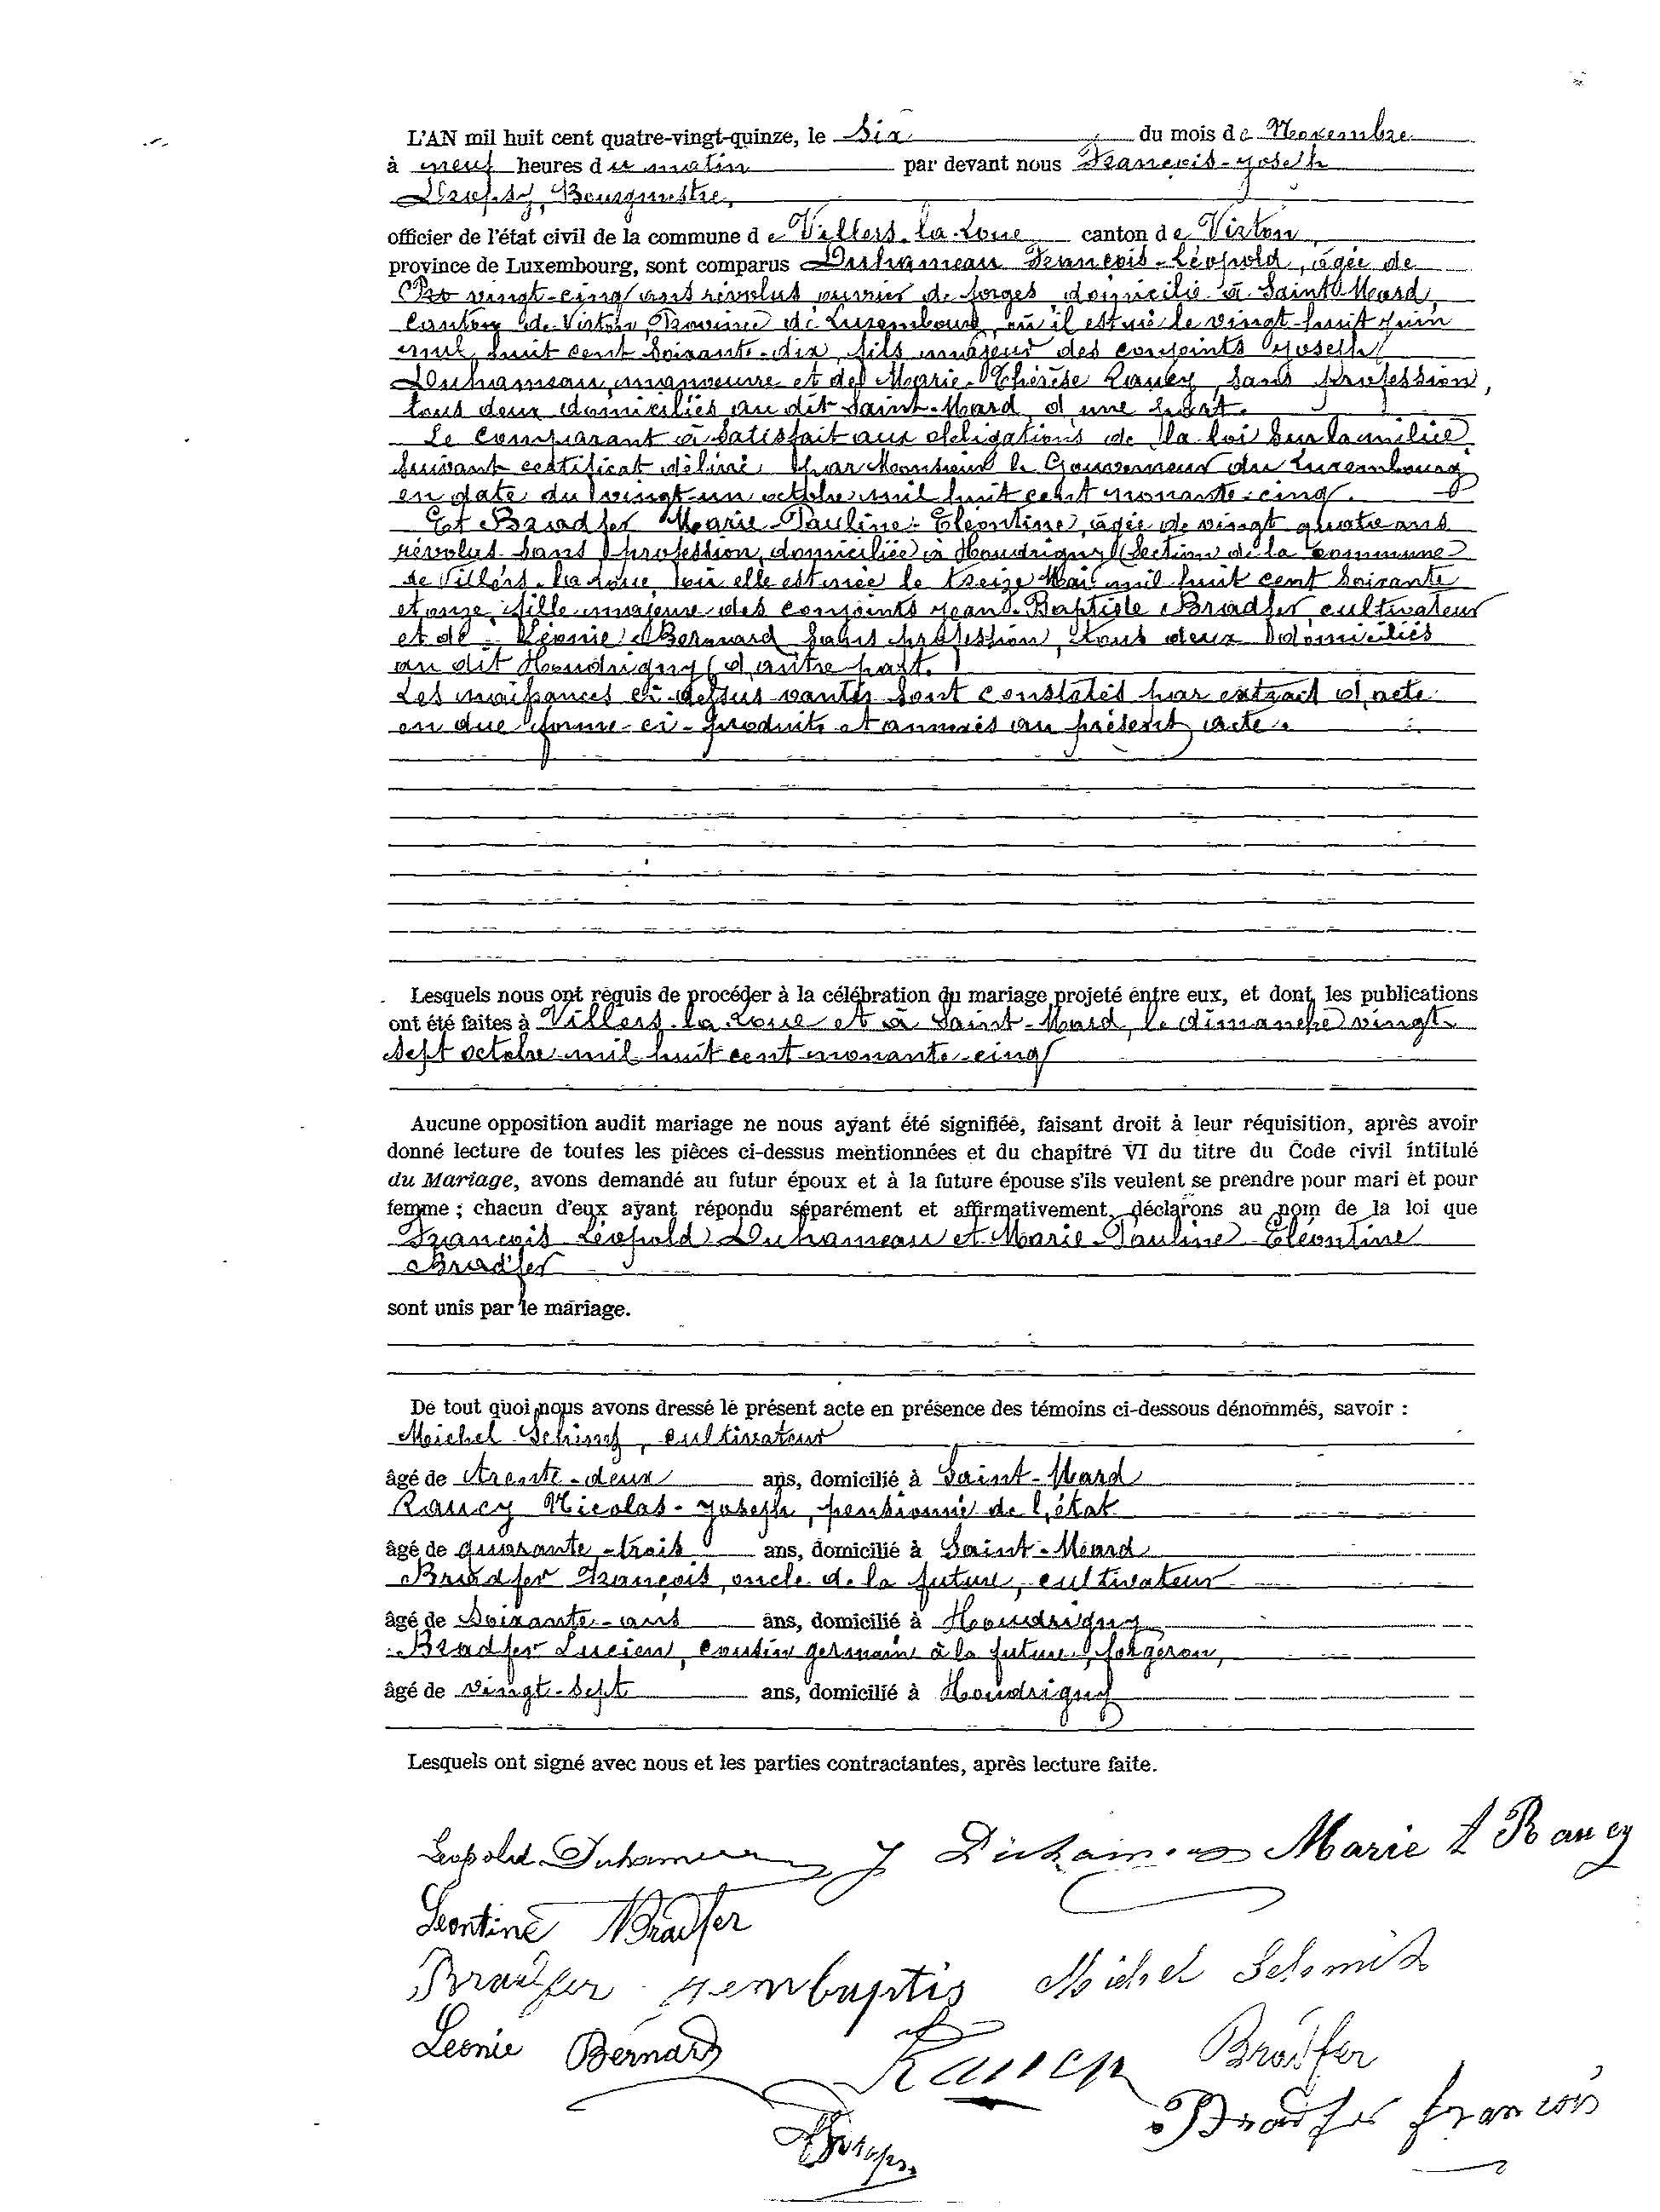 L'AN mil huit cent quatre-vingt-quinze, le Six du mois de Novembre
à neuf heures du matin par devant nous François-Joseph
Bourgmestre,
officier de l'état civil de la commune de Villers-la-Loue canton de Virton,
province de Luxembourg, sont comparus Duhameau François-Léopold, âgée de
vingt-cinq ans révolus ouvrier de forges, domicilié à Saint-Mard,
canton de Virton, Province de Luxembourg, où il est né le vingt-huit juin
mil huit cent soixante-dix, fils majeur des conjoints Joseph
Duhameau, manoeuvre et de Marie-Thérèse Rancy, sans profession,
tous deux domiciliés au dit Saint-Mard, d'une part.
Le comparant à satisfait aux obligations de la loi sur la milice
suivant certificat délivré par Monsieur le Gouverneur du Luxembourg
en date du vingt-un octobre mil huit cent nonante-cinq.
Et Bradfer Marie-Pauline-Eléontine, âgée de vingt quatre ans
révolus sans profession, domiciliée à Houdrigny (section de la commune
de Villers-la-Loue, où elle est née le treize Mai mil huit cent soixante
et onze, fille majeure des conjoints Jean-Baptiste Bradfer, cultivateur
et de Léonie Bernard sans profession, tous deux domiciliés
au dit Houdrigny, d'autre part.
Les naissances ci-dessus vantés sont constatés par extrait d'acte
en due forme ci-produits et annexés au présent acte.
Lesquels nous ont requis de procéder à la célébration du mariage projeté entre eux, et dont les publications
ont été faites à Villers-la-Loue et à Saint-Mard, le dimanche vingt
sept octobre mil huit cent nonante-cinq
Aucune opposition audit mariage ne nous ayant été signifiée, faisant droit à leur réquisition, après avoir
donné lecture de toutes les pièces ci-dessus mentionnées et du chapitre VI du titre du Code civil intitulé
du Mariage, avons demandé au futur époux et à la future épouse s'ils veulent se prendre pour mari et pour
femme ; chacun d'eux ayant répondu séparément et affirmativement, déclarons au nom de la loi que
François Léopold Duhameau et Marie-Pauline Eléontine
Bradfer
sont unis par le mariage.
De tout quoi nous avons dressé le présent acte en présence des témoins ci-dessous dénommés, savoir :
Michel, cultivateur
âgé de trente-deux ans, domicilié à Saint-Mard
Rancy Nicolas-Joseph, pensionné de l'état
âgé de quarante-trois ans, domicilié à Saint-Mard
Bradfer François, oncle de la future, cultivateur
âgé de soixante-ans ans, domicilié à Houdrigny
Bradfer Lucien, cousin germain à la future, forgeron,
âgé de vingt-sept ans, domicilié à Houdrigny
Lesquels ont signé avec nous et les parties contractantes, après lecture faite.
Leopold Duhameau J Duhameau Marie t Rancy
Leontine Bradfer
Bradfer Michel Schmit
Leonie Bernard Rancy Bradfer
Bradfer françois